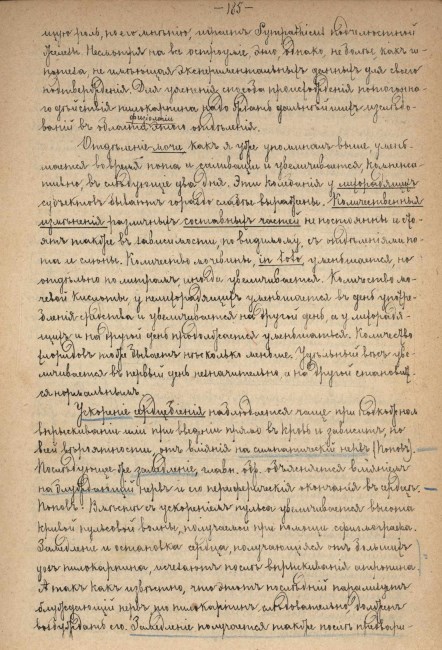 — 165 —
щую роль, по его мнѣнію, играетъ Sympathicus подчелюстной
железы. Несмотря на все остроуміе, это, однако, не болѣе, какъ ги-
потеза не имѣющая экспериментальныхъ данныхъ для своего
подтвержденія. Для уясненія способа происхожденія потогонна-
го дѣйствія пилокарпина надо ждать дальнѣйшихъ изслѣдо-
ваній въ области физіологіи этого отдѣленія.
Отдѣленіе мочи какъ я уже упоминалъ выше, умень-
шается во время пота и саливаціи и увеличивается, компенса-
тивно, въ слѣдующіе два дня. Эти колебанія у лихорадящихъ
субъектовъ бываютъ гораздо слабѣе выражены. Количественныя
измѣненія различныхъ составныхъ частей не постоянны и сто-
ятъ также въ зависимости, по видимому, съ отдѣленіями по-
та и слюны. Количество мочевины, in toto, уменьшается, но
отдѣльно по литрамъ, иногда увеличивается. Количество мо-
чевой кислоты, у нелихорадящихъ уменьшается въ день употреб-
ленія средства и увеличивается на другой день, а у лихорадя-
щихъ и на другой день продолжаетъ уменьшаться. Количество
хлоридовъ тоже бываетъ нѣсколько меньше. Удѣльный вѣсъ уве-
личивается въ первый день незначительно, а на другой становит-
ся нормальнымъ.
Ускореніе сердцебіенія наблюдается чаще при подкожномъ
впрыскиваніи или при введеніи прямо въ кровь и зависитъ, по
всей вѣроятности, отъ вліянія на симпатическій нервъ (Поповъ).
Послѣдующее же замедленіе, главн. обр. объясняется вліяніемъ
на блуждающій нервъ и его периферическія окончанія въ сердцѣ.
Поповъ. Вмѣстѣ съ ускореніемъ пульса увеличивается высота
кривой пульсовой волны, получаемой при помощи сфигмографа.
Замедленіе и остановка сердца, получающіяся отъ большихъ
дозъ пилокарпина, исчезаютъ послѣ впрыскиванія атропина.
А такъ какъ извѣстно, что этотъ послѣдній парализуетъ
блуждающій нервъ, то пилокарпинъ слѣдовательно долженъ
возбуждать его. Замедленіе получается также послѣ предвари-